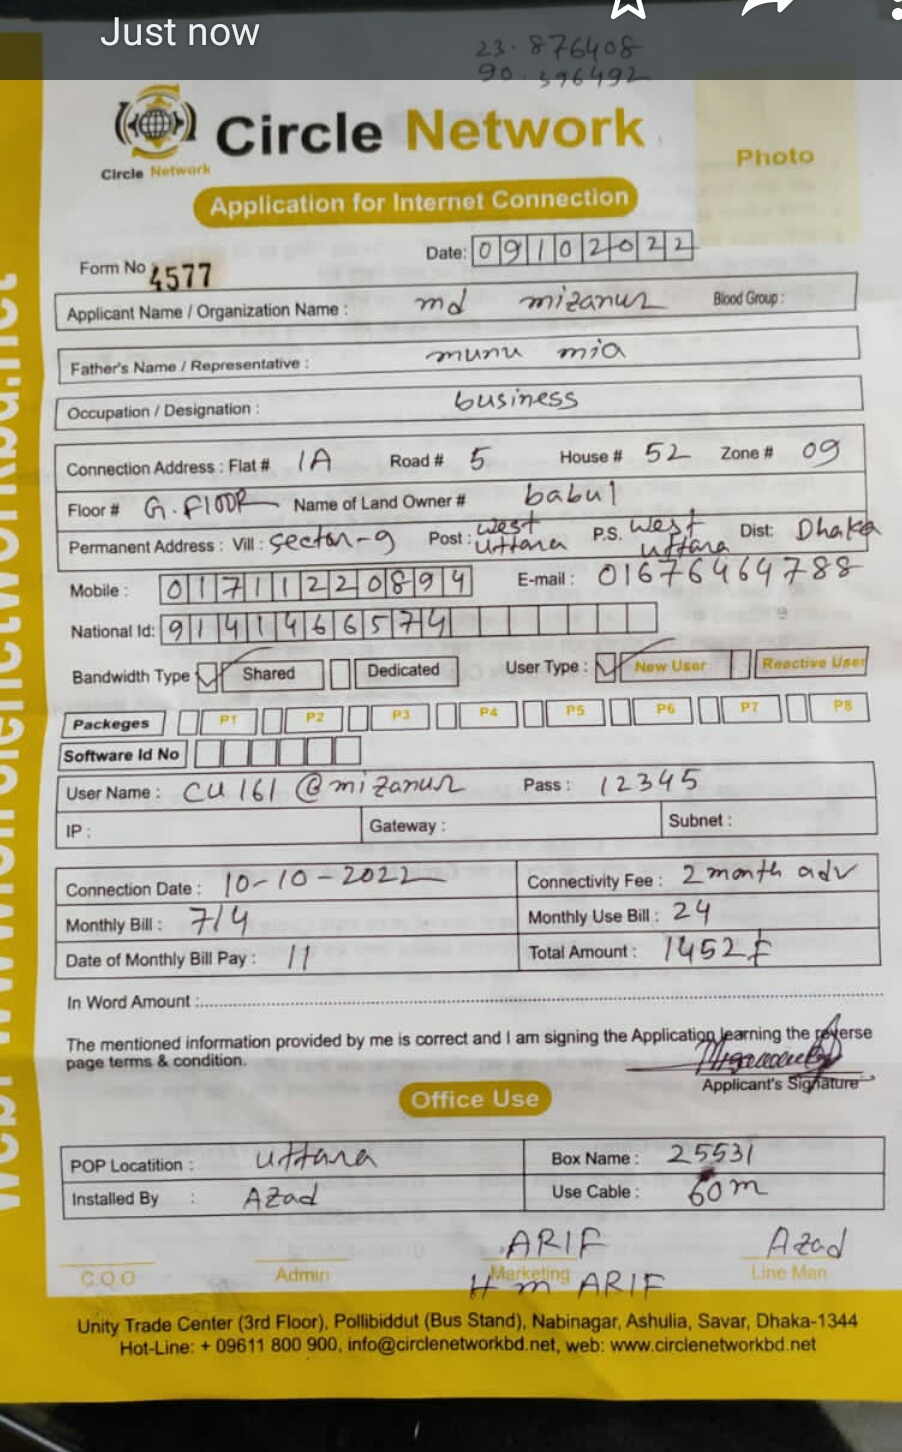 Just now
23.876408
90.396492
Circle Network
Circle Network
Photo
Application for Internet Connection
Date: 09102022
Form No 4577
Applicant Name / Organization Name : md mizanur Blood Group :
Father's Name / Representative : munu mia
Occupation / Designation : business
Connection Address : Flat # 1A Road # 5 House # 52 Zone # 09
Floor # G.FlOOR Name of Land Owner # babul
Permanent Address : Vill : Sector-9 Post : west uttara P.S. west uttara Dist: Dhaka
Mobile : 01711220894 E-mail : 01676464788
National Id: 9141466574
Bandwidth Type Shared Dedicated User Type : New User Reactive User
Packeges P1 P2 P3 P4 P5 P6 P7 P8
Software Id No
User Name : CU161@mizanur Pass : 12345
IP : Gateway : Subnet :
Connection Date : 10-10-2022 Connectivity Fee : 2 month adv
Monthly Bill : 714 Monthly Use Bill : 24
Date of Monthly Bill Pay : 11 Total Amount : 1452
In Word Amount :
The mentioned information provided by me is correct and I am signing the Application learning the reverse
page terms & condition.
Applicant's Signature
Office Use
POP Locatition : uttara Box Name : 25531
Installed By : Azad Use Cable : 60m
ARIF Azad
C.O.O Admin Marketing Line Man
H m ARIF
Unity Trade Center (3rd Floor), Pollibiddut (Bus Stand), Nabinagar, Ashulia, Savar, Dhaka-1344
Hot-Line: + 09611 800 900, info@circlenetworkbd.net, web: www.circlenetworkbd.net